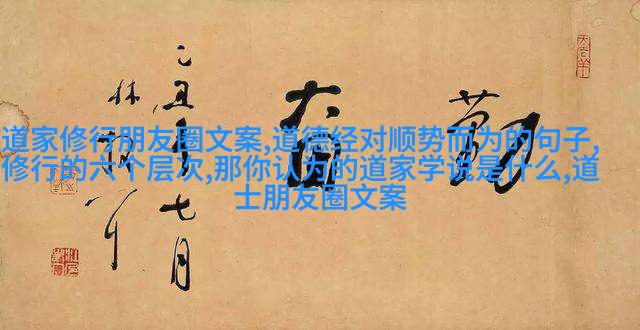 道家修行朋友圈文案,道德经对顺势而为的句子,
修行的六个层次,那你认为的道家学说是什么,道
士朋友圈文案
勤奋
乙丑年七月